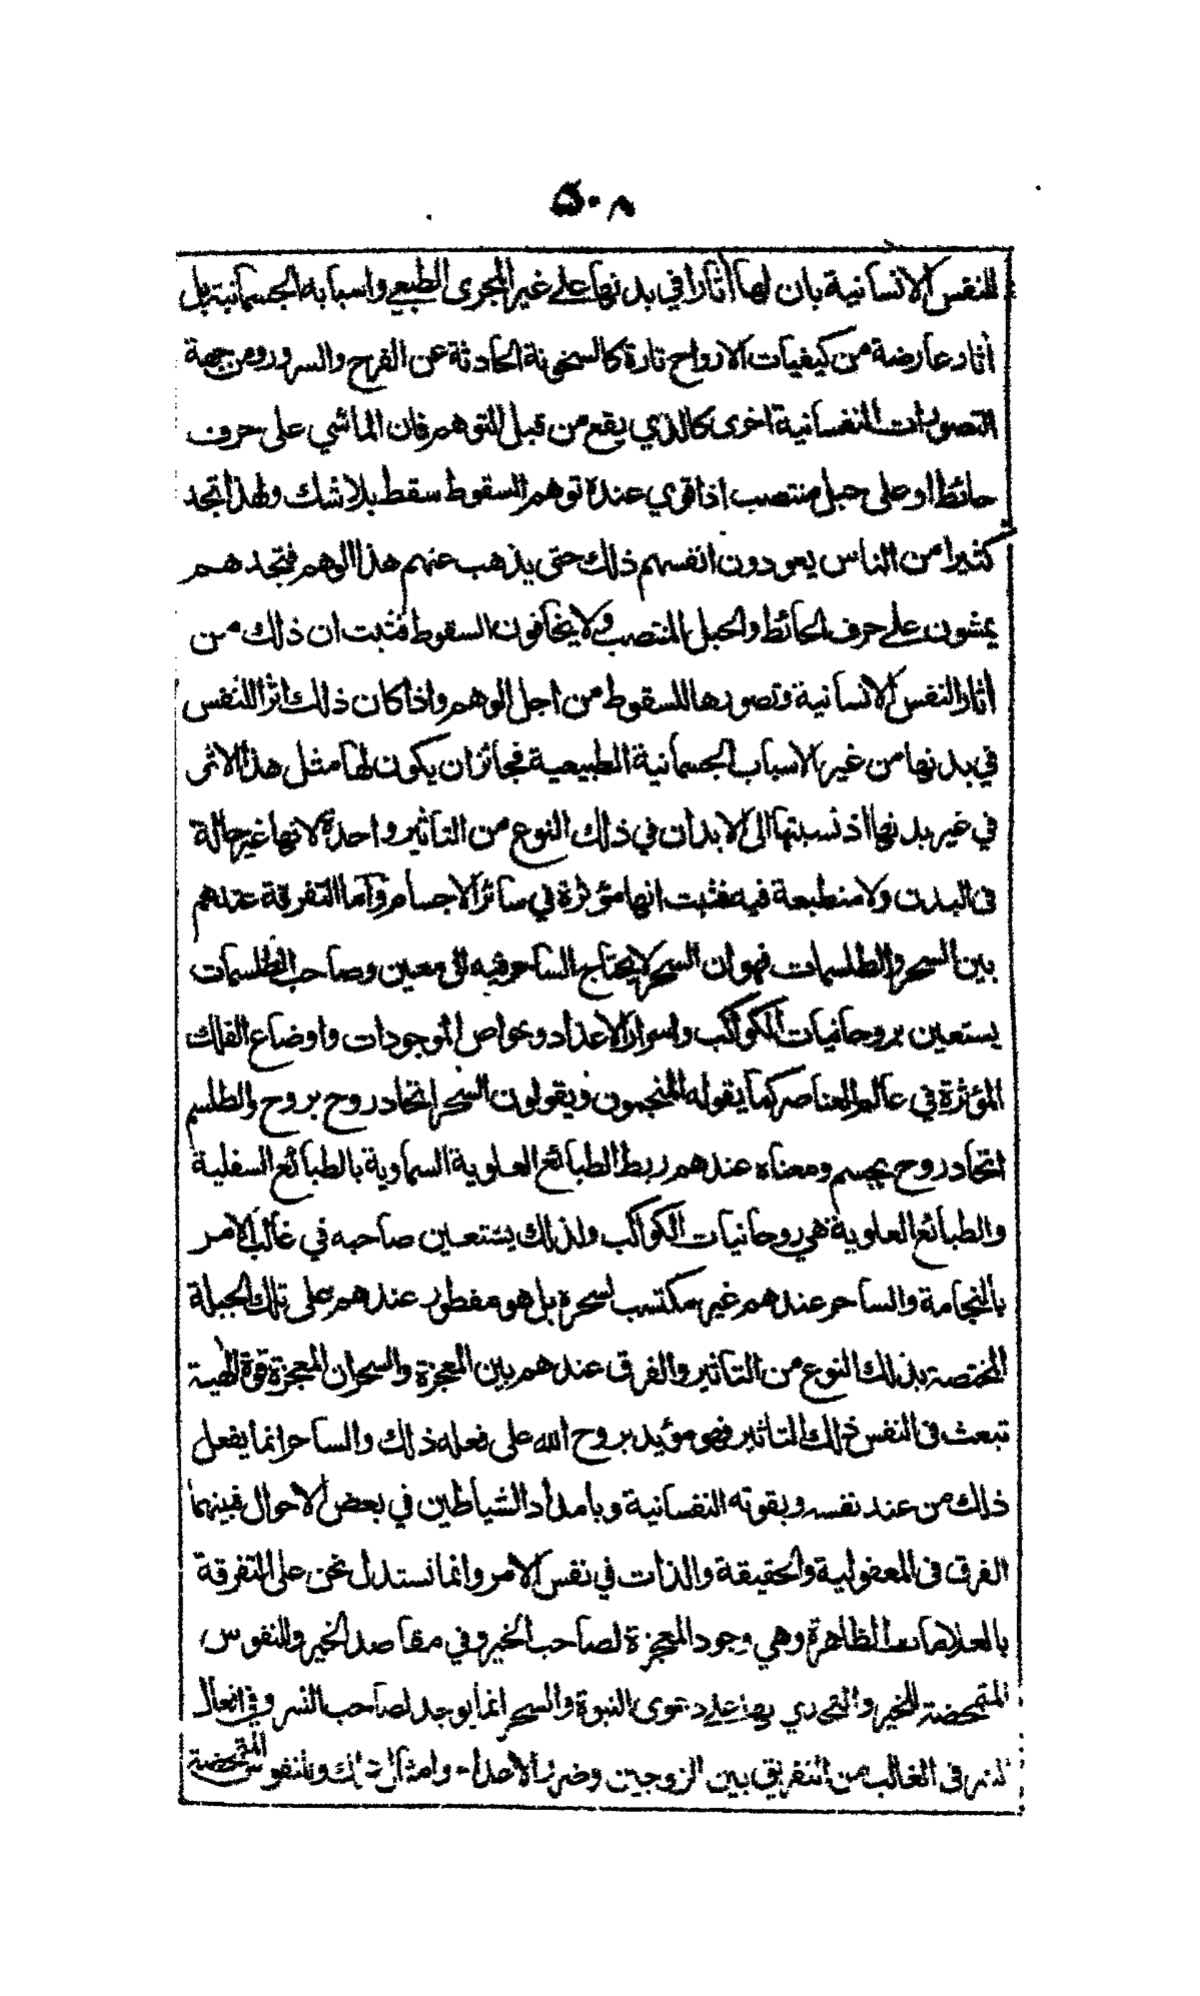 ٥٠٨
للنفس الانسانية بان لها اٰثارا في بدنها على غير المجرى الطبعي واسبابه الجسمانية بل
اٰثار عارضة من كيفيات الارواح تارة كالسخونة الحادثة عن الفرح والسرور ومن جهة
التصورات النفسانية اخرى كالذي يقع من قبل التوهم فان الماشي على حرف
حائط او على حبل منتصب اذا قوي عنده توهم السقوط سقط بلا شك ولهذا تجد
كثيرا من الناس يعودون انفسهم ذلك حتى يذهب عنهم هذا الوهم فتجدهم
يمشون على حرف الحائط والحبل المنتصب ولا يخافون السقوط فثبت ان ذلك من
اٰثار النفس الانسانية وتصورها للسقوط من اجل الوهم واذا كان ذلك اثرا للنفس
في بدنها من غير الاسباب الجسمانية الطبيعية فجائز ان يكون لها مثل هذا الاثر
في غير بدنها اذ نسبتها الى الابدان في ذلك النوع من التاثير واحدة لانها غير حالة
فى البدن ولا منطبعة فيه فثبت انها مؤثرة في سائر الاجسام واما التفرقة عندهم
بين السحر والطلسمات فهو ان السحر لا يحتاج الساحر فيه الى معين وصاحب الطلسمات
يستعين بروحانيات الكواكب واسرار الاعداد وخواص الموجودات واوضاع الفلك
المؤثرة في عالم العناصر كما يقوله المنجمون ويقولون السحر اتحاد روح بروح والطلسم
اتحاد روح بجسم ومعناه عندهم ربط الطبائع العلوية السماوية بالطبائع السفلية
والطبائع العلوية هي روحانيات الكواكب ولذلك يستعين صاحبه في غالب الامر
بالنجامة والساحر عندهم غير مكتسب لسحره بل هو مفطور عندهم على تلك الجبلة
المختصة بذلك النوع من التاثير والفرق عندهم بين المعجزة والسحر ان المعجزة قوة الٰهية
تبعث فى النفس ذلك التاثير فهو مؤيد بروح الله على فعله ذلك والساحر انما يفعل
ذلك من عند نفسه وبقوته النفسانية وبامداد الشياطين في بعض الاحوال فبينهما
الفرق فى المعقولية والحقيقة والذات في نفس الامر وانما نستدل نحن على التفرقة
بالعلامات الظاهرة وهي وجود المعجزة لصاحب الخير وفي مقاصد الخير وللنفوس
المتمحضة للخير والتحدي بها على دعوى النبوة والسحر انما يوجد لصاحب الشر وفي افعال
الشر فى الغالب من التفريق بين الزوجين وضرر الاعداء وامثال ذلك وللنفوس المتمحضة